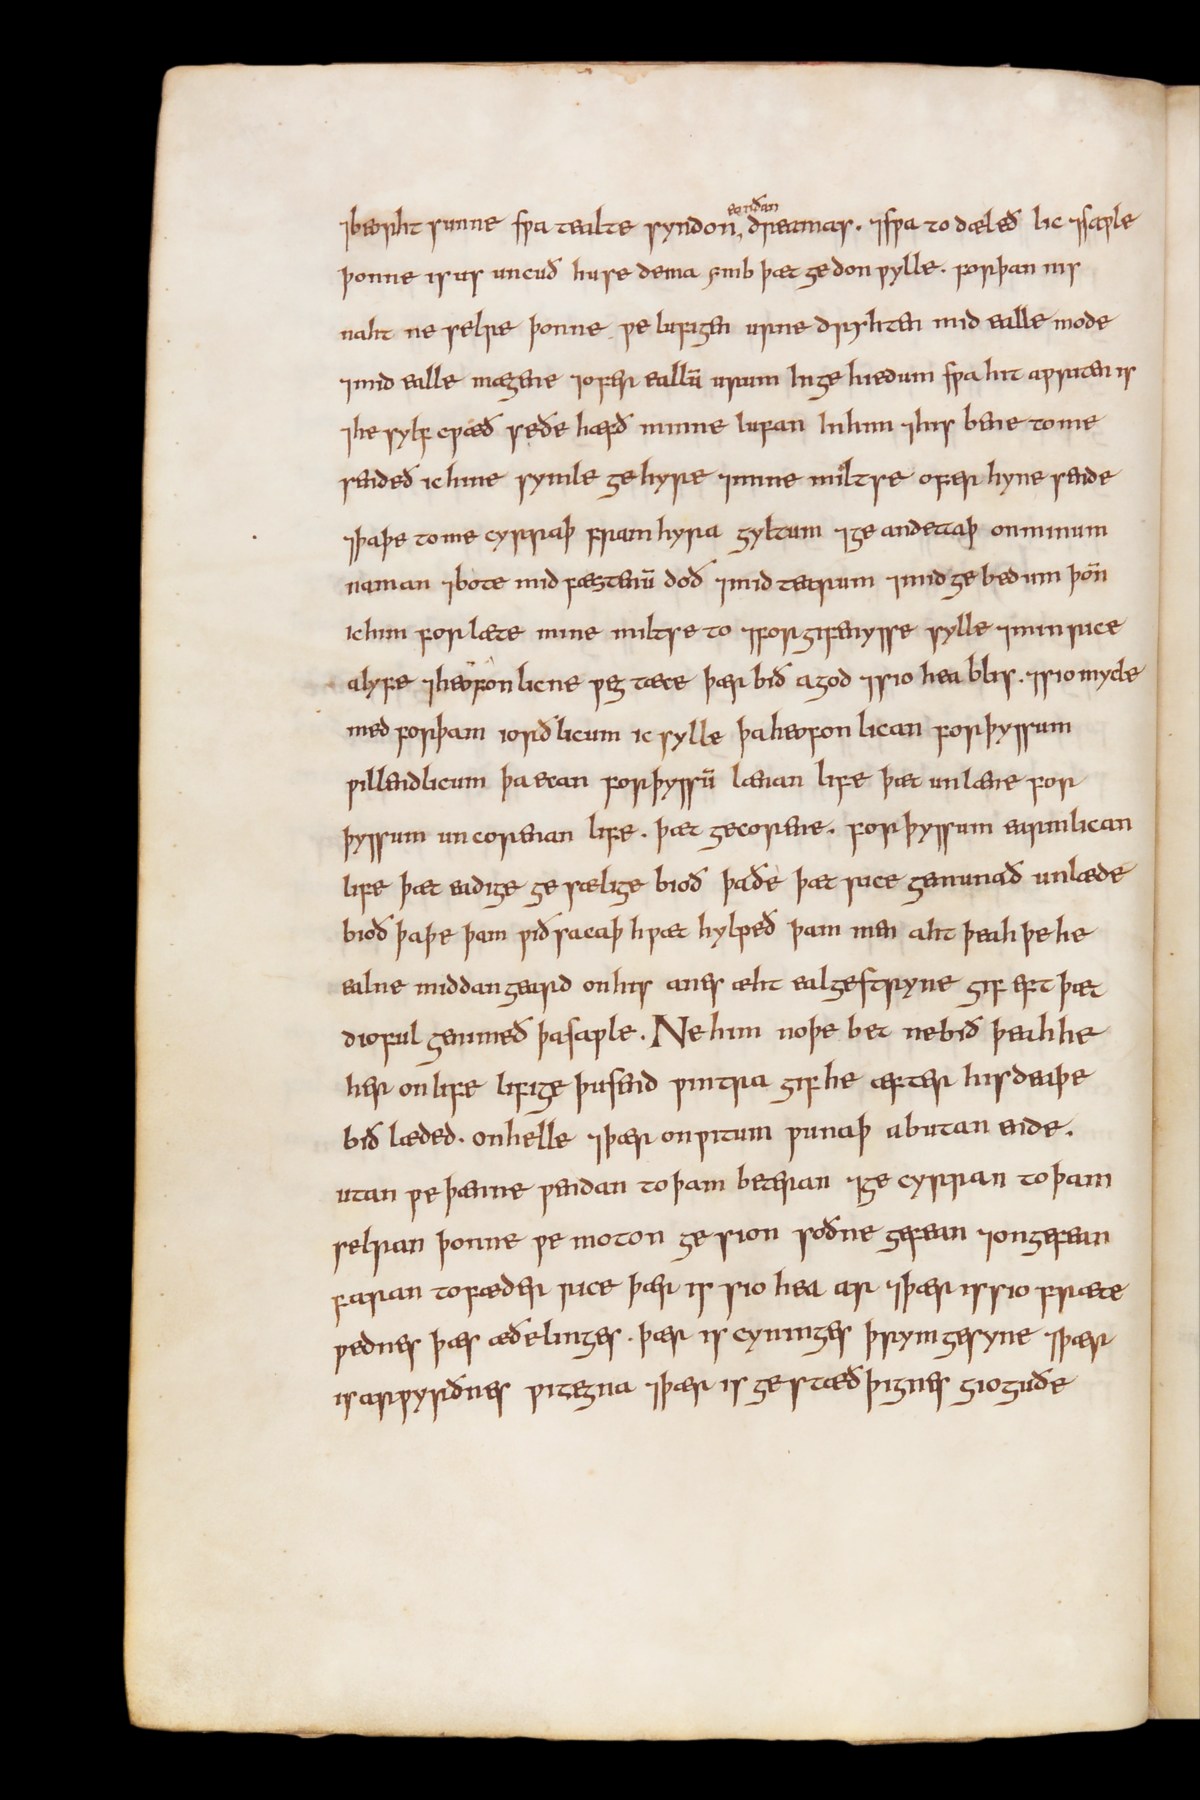 ⁊beorht sunne swa tealte syndon eorðan dreamas. ⁊swa todæleð lic ⁊sawle
þonne is us uncuð huse dema ymb þæt gedon wylle. forþan nis
naht ne selre þonne we lufigen urne dryhten mid ealle mode
⁊mid ealle mægene ⁊ofer eallū urum Ingehiedum swa hit awriten is
⁊he sylf cwæð seðe hæfð minne lufan Inhim ⁊his bene tome
sendeð ic hine symle gehyre ⁊mine miltse ofer hyne sende
⁊þaþe tome cyrraþ fram hyra gyltum ⁊ge andettaþ onminum
naman ⁊bote mid fæstenū doð ⁊mid tearum ⁊mid gebedum þōn
ic him forlæte mine miltse to ⁊forgifenysse sylle ⁊min rice
alyfe ⁊heofonlicne weg tæce þær bið a god ⁊sio hea blis. ⁊sio mycle
med forþam iorðlicum ic sylle þa heofonlican forþyssum
willendlicum þa ecan forþyssū lænan life þæt unlæne for
þyssum uncorenan life. þæt gecorene. forþyssum earmlican
life þæt eadige gesælige bioð þaðe þæt rice gemunað unlæde
bioð þaþe þam wiðsacaþ hwæt hylpeð þam men aht þeah þe he
ealne middangeard onhis anes æht eal gestryne gif eft þæt
diofol genimeð þa sawle. Ne him noþe bet nebið þeah he
her onlife lifige þusend wintra gif he æfter his deaþe
bið læded. onhelle ⁊þær onwitum wunaþ abutan ende.
utan we þænne wendan toþam beteran ⁊ge cyrran toþam
selran þonne we moton gesion soðne gefean ⁊ongefean
faran tofæder rice þær is sio hea ar ⁊þær is sio fræte
wednes þæs æðelinges. þær is cyninges þrym gesyne ⁊þær
is arwyrðnes witegna ⁊þær is gestæðþignes gioguðe